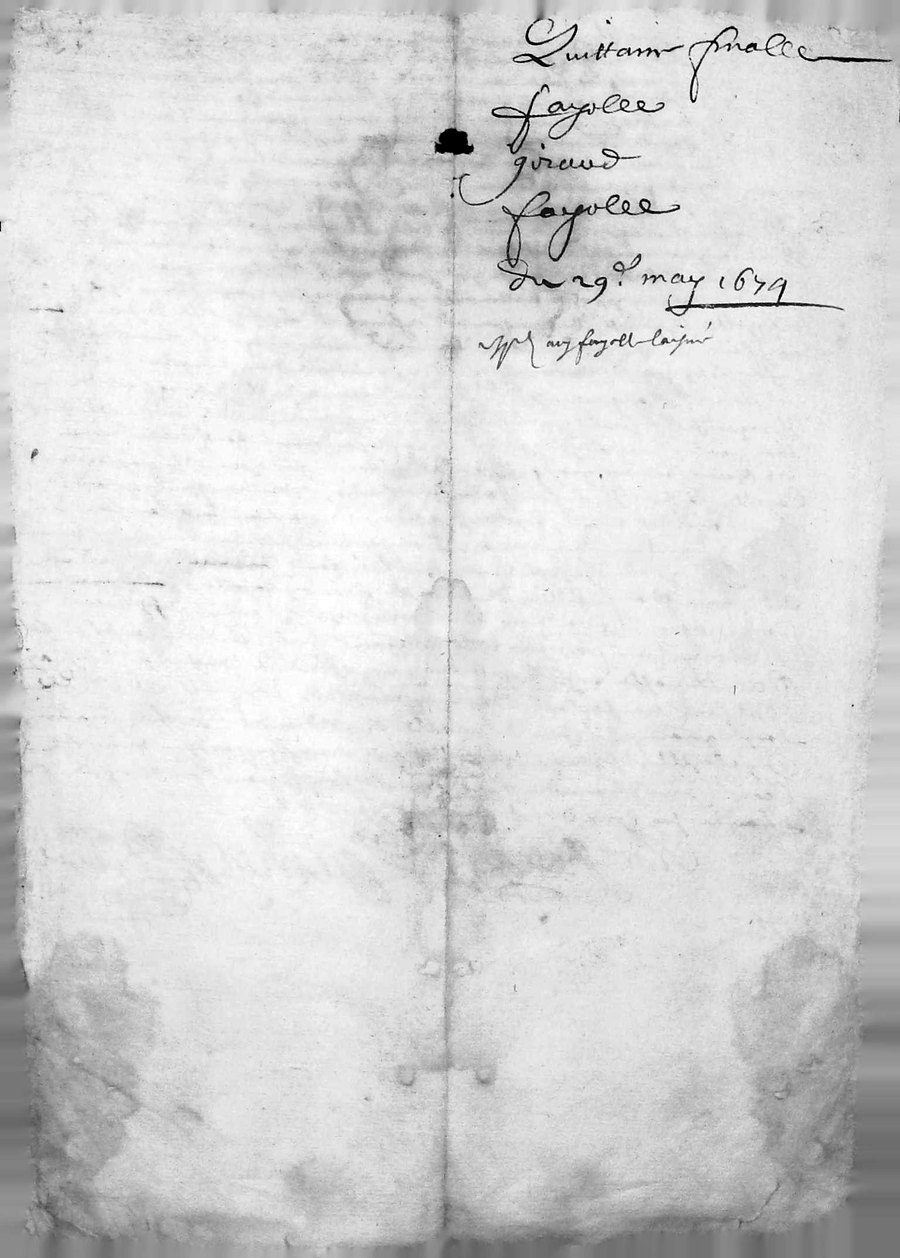 Quittance finalle
fayolle
giraud
fayolle
du 29e may 1679
fayolle laisné